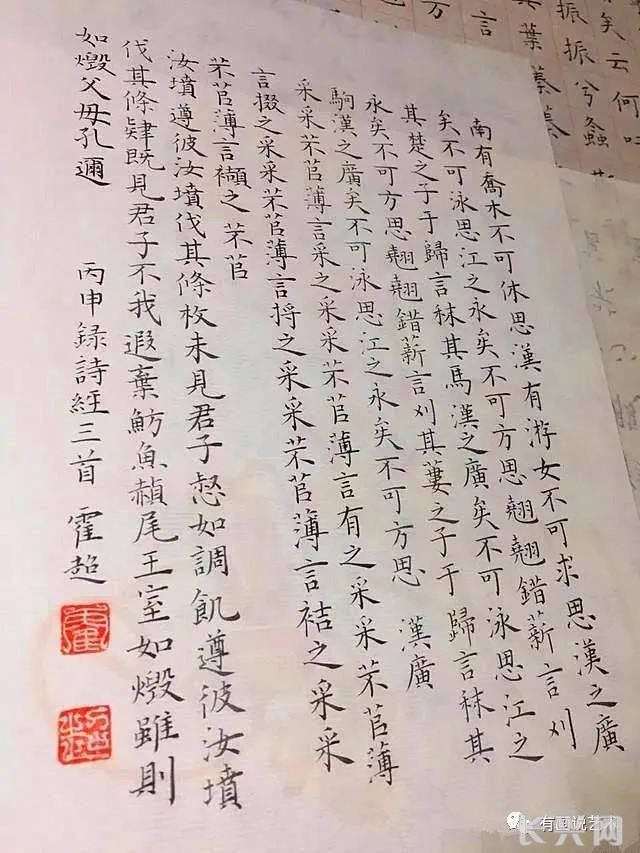 南有喬木不可休思漢有游女不可求思漢之廣
矣不可泳思江之永矣不可方思翹翹錯薪言刈
其楚之子于歸言秣其馬漢之廣矣不可泳思江之
永矣不可方思翹翹錯薪言刈其蔞之子于歸言秣其
駒漢之廣矣不可泳思江之永矣不可方思 漢廣
采采芣苢薄言采之采采芣苢薄言有之采采芣苢薄
言掇之采采芣苢薄言捋之采采芣苢薄言袺之采采
芣苢薄言襭之 芣苢
汝墳遵彼汝墳伐其條枚未見君子惄如調飢遵彼汝墳
伐其條肄既見君子不我遐棄魴魚赬尾王室如燬雖則
如燬父母孔邇 丙申録詩經三首 霍超
霍
超
矣云何吁
振振兮螽
其葉蓁蓁
言
方
有画说艺术
长兴网